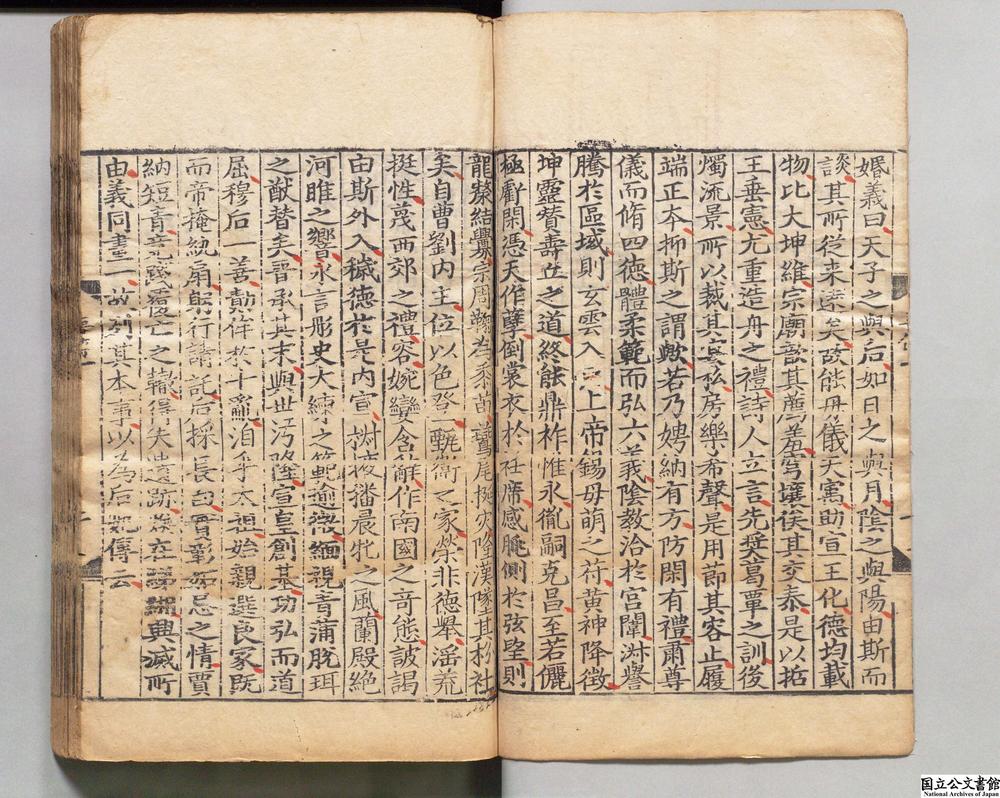 婚義曰天子之與后如日之與月隂之與陽由斯而
談其所從来逺矣故能母儀天㝢助宣王化德均載
物比大坤維宗廟歆其薦羞穹壤俟其交泰是以哲
王垂憲尤重造舟之禮詩人立言先奬葛覃之訓後
燭流景所以裁其宴私房樂希聲是用節其容止履
端正本抑斯之謂歟若乃娉納有方防閑有禮肅尊
儀而脩四德體柔範而弘六義隂教洽於宫闈淋譽
騰於區域則玄雲入上帝錫毋萌之符黄神降徵
坤靈賛壽丘之道終能鼎祚惟永胤嗣克昌至若儷
極虧閑憑天作孽倒裳衣於衽席感朓側於弦望則
龍漦結釁宗周鞠為黍苗䴏尾挻灾隆漢墜其枌社
矣自曹劉内主位以色登甄衛之家榮非德舉滛荒
挺性蔑西郊之禮容婉孌含辭作南國之奇態詖謁
由斯外入穢德於是内宣椒掖播晨牝之風蘭殿絶
河雎之響永言彤史大練之範逾微緬視青蒲脫珥
之猷替矣晉承其末與世汚隆宣皇創基功弘而道
屈穆后一善勣侔於十亂洎乎太祖始親選良家既
而帝掩紈扇躬行請託后採長白實彰妬忌之情賈
納短青竟踐覆亡之轍得失遺跡焕在綈緗興滅所
由義同畫一故列其本事以為后妃傳云
国立公文書館
National Archives of Japan